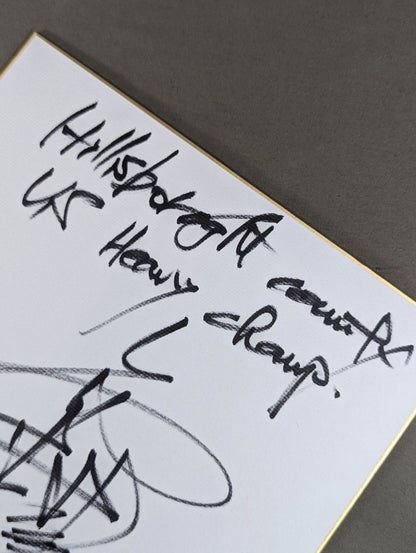 Hillsborough county
US Heavy champ.